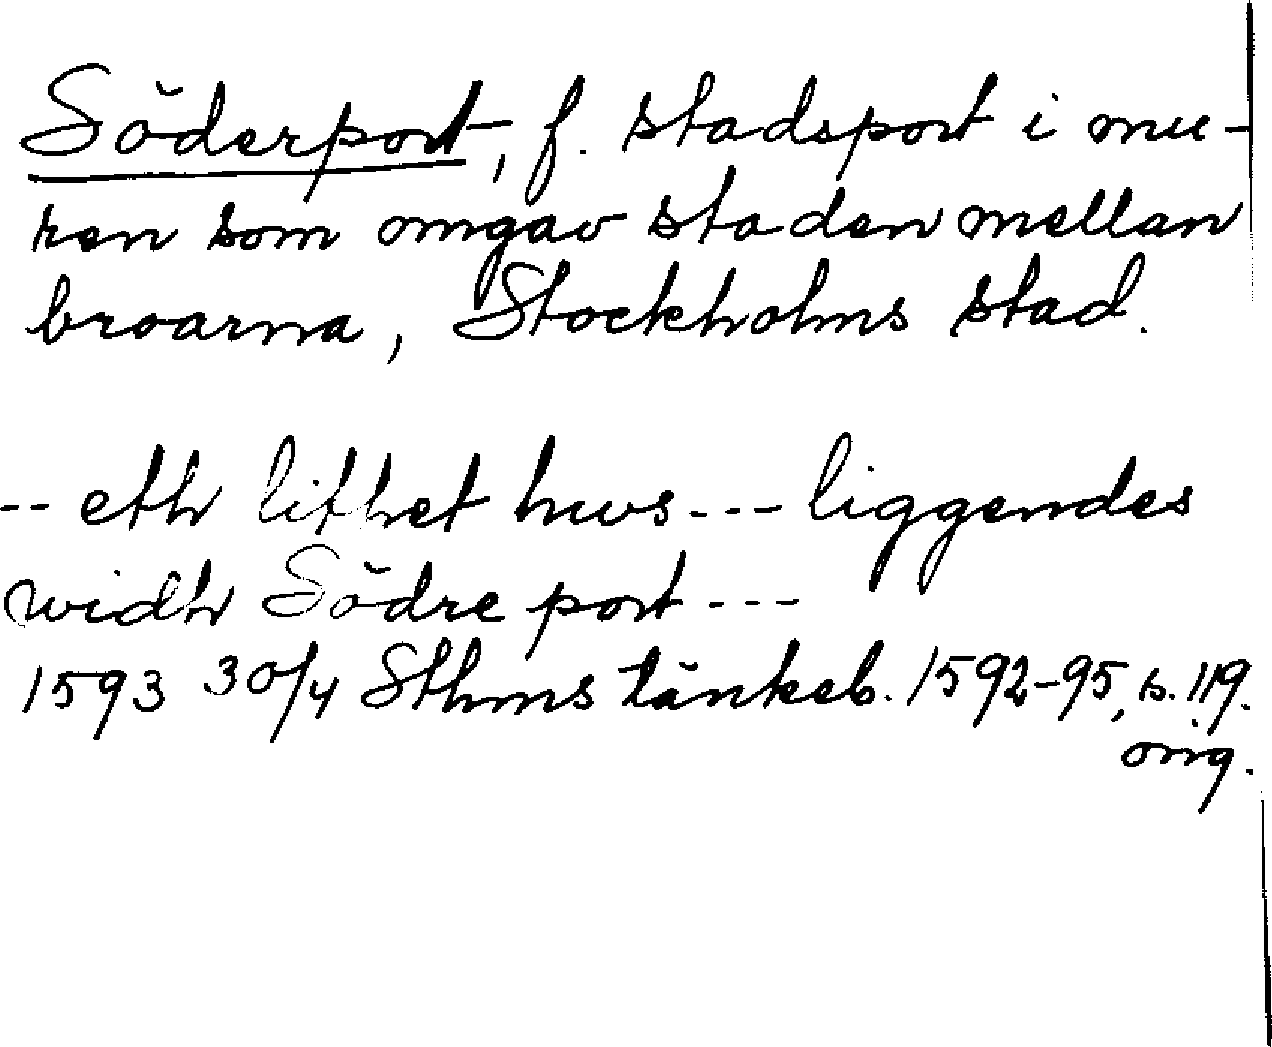 Söderport, f. stadsport i mu-
ren som omgav staden mellan
broarna, Stockholms stad.
-- eth lithet hws --- liggendes
widh Södre port ---
1593 30/4 Sthms tänkeb. 1592-95, s. 119.
orig.